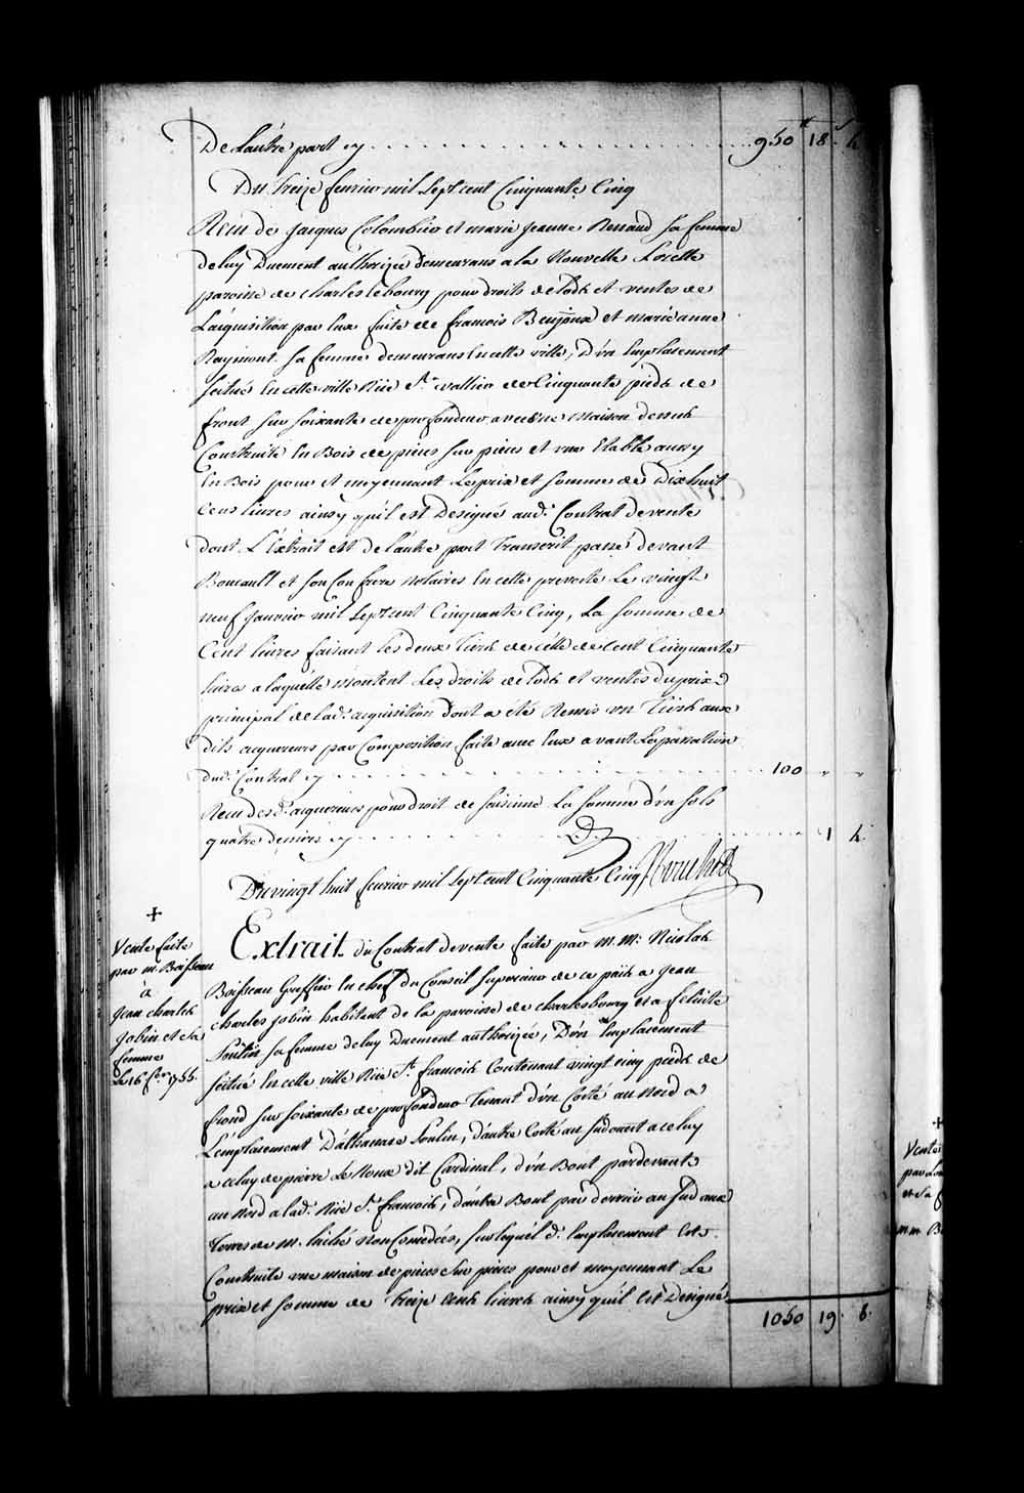 De L'autre part cy . . . . . . . . . . 950 ₶ 18 s 4
Du treize fevrier mil sept cent Cinquante Cinq
Receu de Jacques Colombier et marie Jeanne Renaud sa femme
de luy Duement authorizée demeurans a la Nouvelle Lorette
paroisse de charles le bourg pour droits de lods et ventes de
L'acquisition par Eux faite de francois et marie anne
Raymont sa femme demeurans En cette ville, D'un Emplacement
scitué En cette ville Rüe St. vallier de Cinquante pieds de
front sur soixante de profondeur avec une maison dessus
Construite En Bois de pieces sur pieces et une Etable aussy
En Bois pour et moyennant Le prix et somme de Dix huit
Cens livres ainsy qu'il est Designé aud. Contrat de vente
dont L'Extrait est de L'autre part Transcrit passé devant
Boucault et son Confrere notaires En cette prevosté Le vingt
neuf Janvier mil sept cent Cinquante Cinq, La somme de
Cent livres faisant les deux tiers de celle de Cent Cinquante
livres a laquelle montent Les droits de lods et ventes du prix
principal de lad. acquisition dont a été Remis un tiers aux
dits acquereurs par Composition faite avec Eux avant La passation
dud. Contrat cy . . . . . . . . . . 100 " "
Receu des d. acquereurs pour droit de saisinne La somme d'un sols
quatre deniers cy . . . . . . . . . . 1 4
Du vingt huit fevrier mil sept cent Cinquante Cinq
+
Vente faite
par m. Boisseau
à
Jean charles
Jobin et sa
femme
Le 16 fer. 1755.
Extrait du Contrat de vente faite par M. Me. Nicolas
Boisseau Greffier En chef du Conseil Superieur de ce païs a Jean
charles Jobin habitant de la paroisse de charlesbourg et a felicité
Poulin sa femme de luy Duement authorizée, D'un Emplacement
scitué En cette ville Rüe St. francois Contenant vingt cinq pieds de
frond sur soixante de profondeur Tenant d'un Costé au Nord a
L'emplacement D'athanase Poulin, d'autre Costé au sudouest a celuy
a celuy de pierre Le Roux dit Cardinal, d'un Bout par devant
au Nord a lad. Rüe St. francois, d'autre Bout par derriere au sud aux
Terres de M. hiché non Concedées, sur lequel d. Emplacement Est
Construite une maison de pieces sur pieces pour et moyennant Le
prix et somme de Treize Cents livres ainsy qu'il Est Designé
1050 19. 8.
+
Vente
par
et sa f
m. m. B